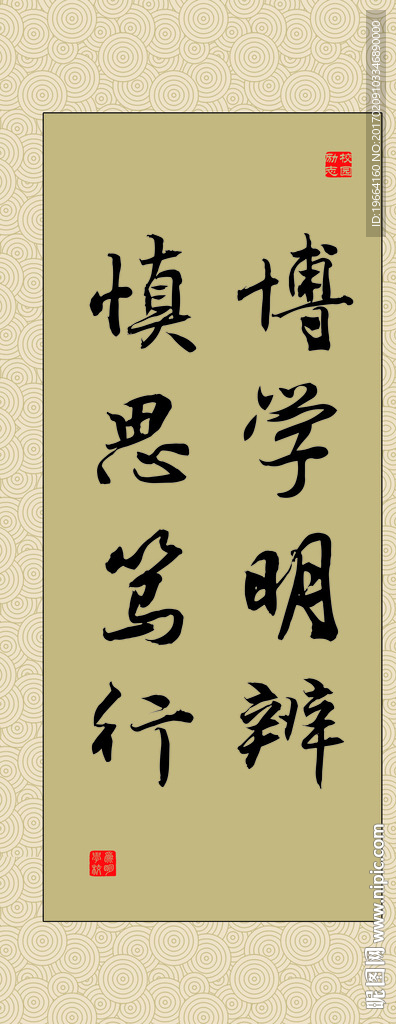 博学明辨
慎思笃行
校园
励志
ID:19664160 NO:20170209103346890000
昵图网 www.nipic.com